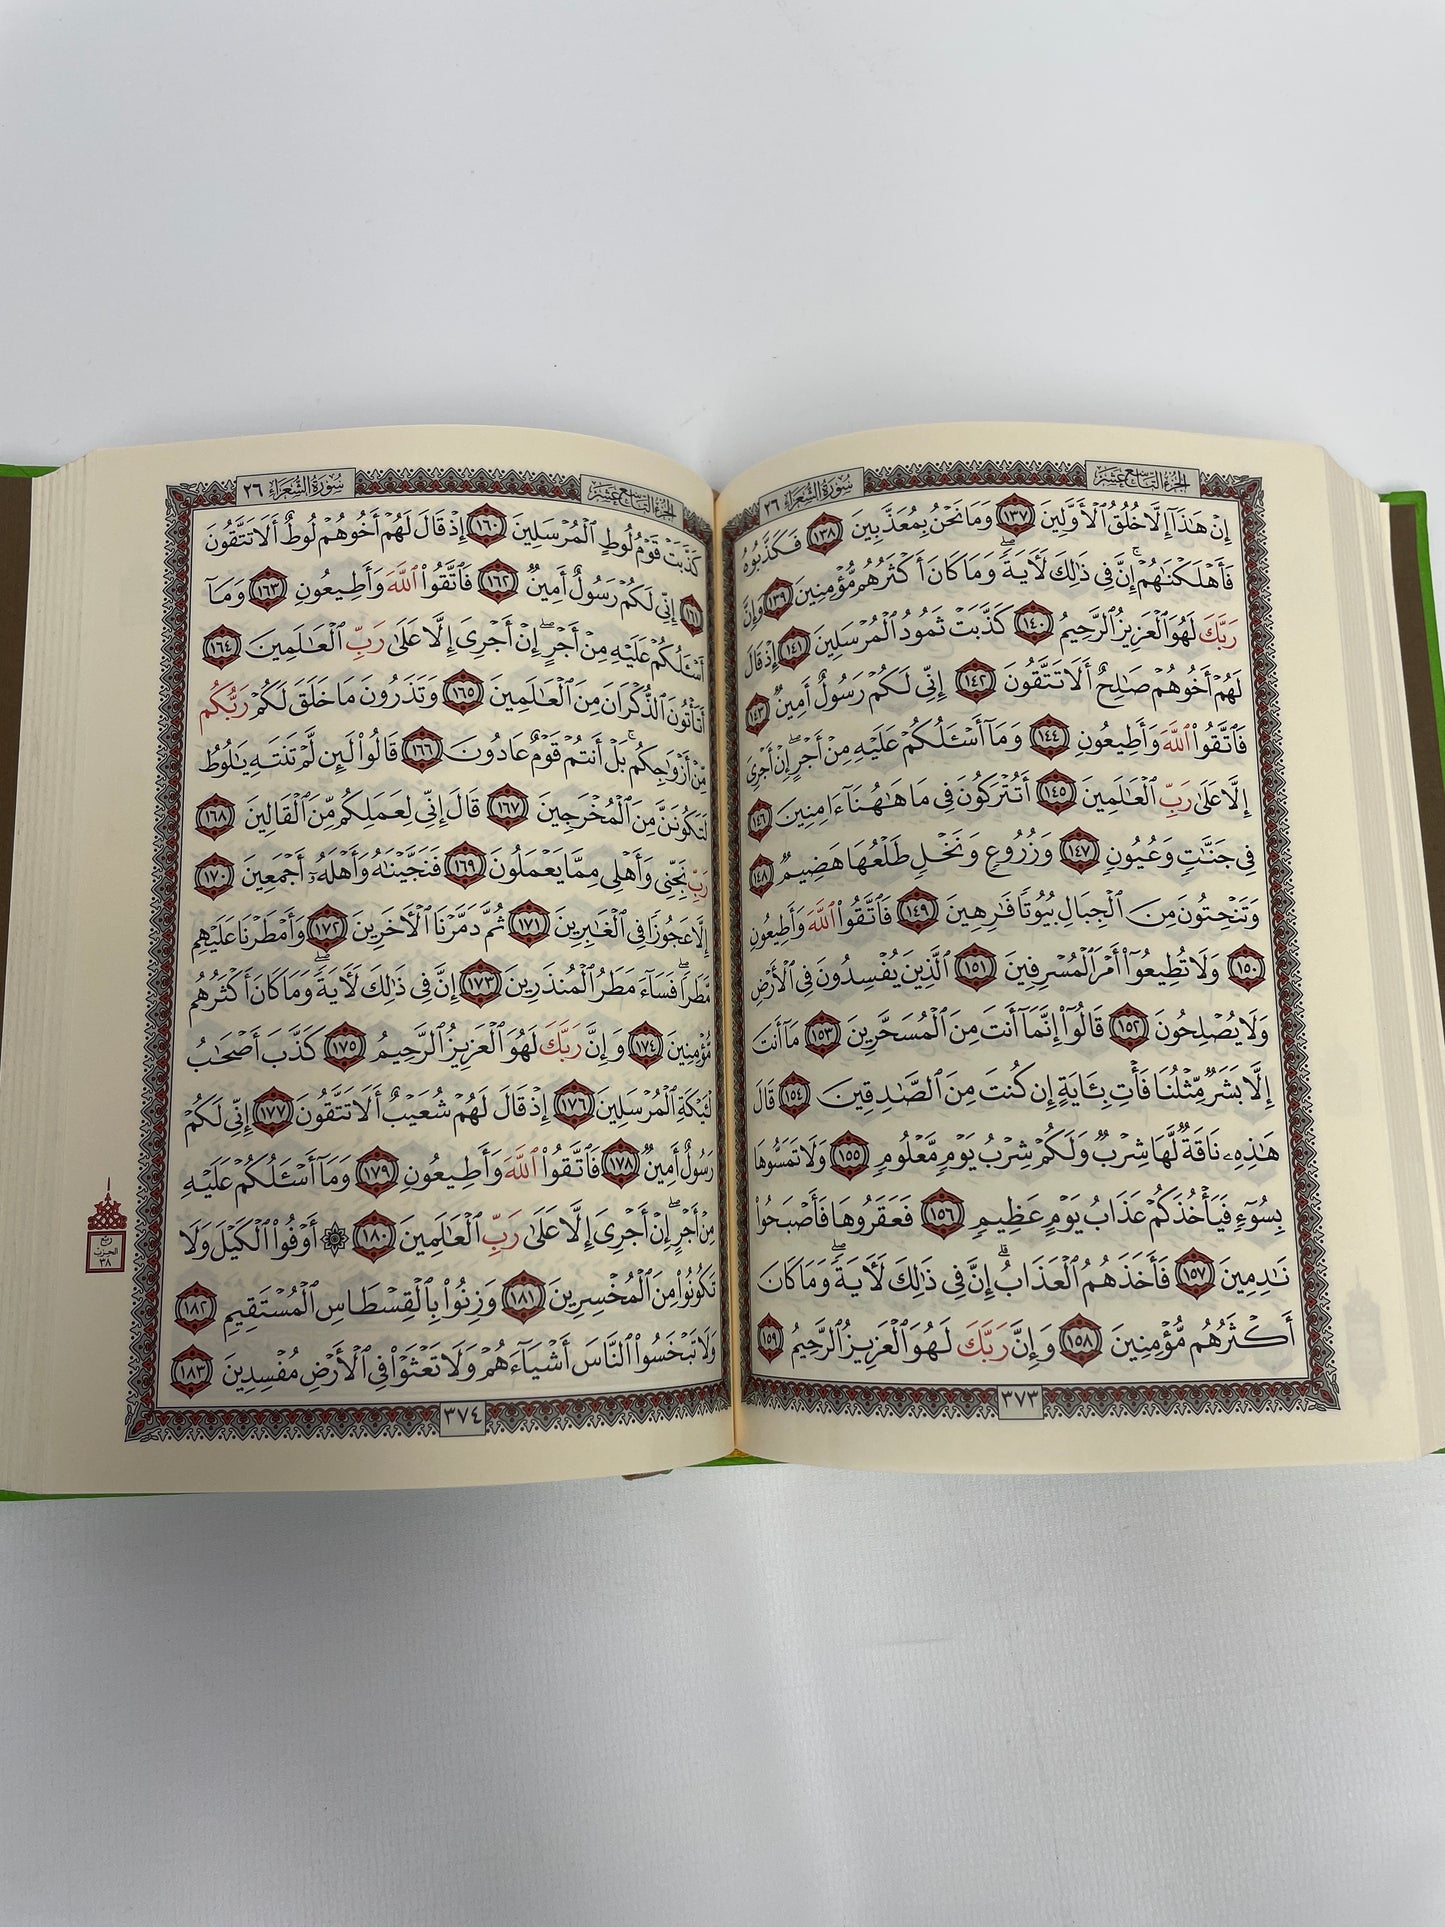 سُورَةُ الشُّعَرَاءِ ٢٦
الجُزْءُ التَّاسِعَ عَشَرَ
إِنۡ هَٰذَآ إِلَّا خُلُقُ ٱلۡأَوَّلِينَ ١٣٧ وَمَا نَحۡنُ بِمُعَذَّبِينَ ١٣٨ فَكَذَّبُوهُ
فَأَهۡلَكۡنَٰهُمۡۚ إِنَّ فِي ذَٰلِكَ لَأٓيَةٗۖ وَمَا كَانَ أَكۡثَرُهُم مُّؤۡمِنِينَ ١٣٩ وَإِنَّ
رَبَّكَ لَهُوَ ٱلۡعَزِيزُ ٱلرَّحِيمُ ١٤٠ كَذَّبَتۡ ثَمُودُ ٱلۡمُرۡسَلِينَ ١٤١ إِذۡ قَالَ
لَهُمۡ أَخُوهُمۡ صَٰلِحٌ أَلَا تَتَّقُونَ ١٤٢ إِنِّي لَكُمۡ رَسُولٌ أَمِينٞ ١٤٣
فَٱتَّقُواْ ٱللَّهَ وَأَطِيعُونِ ١٤٤ وَمَآ أَسۡـَٔلُكُمۡ عَلَيۡهِ مِنۡ أَجۡرٍۖ إِنۡ أَجۡرِيَ
إِلَّا عَلَىٰ رَبِّ ٱلۡعَٰلَمِينَ ١٤٥ أَتُتۡرَكُونَ فِي مَا هَٰهُنَآ ءَامِنِينَ ١٤٦
فِي جَنَّٰتٖ وَعُيُونٖ ١٤٧ وَزُرُوعٖ وَنَخۡلٖ طَلۡعُهَا هَضِيمٞ ١٤٨
وَتَنۡحِتُونَ مِنَ ٱلۡجِبَالِ بُيُوتٗا فَٰرِهِينَ ١٤٩ فَٱتَّقُواْ ٱللَّهَ وَأَطِيعُونِ
١٥٠ وَلَا تُطِيعُوٓاْ أَمۡرَ ٱلۡمُسۡرِفِينَ ١٥١ ٱلَّذِينَ يُفۡسِدُونَ فِي ٱلۡأَرۡضِ
وَلَا يُصۡلِحُونَ ١٥٢ قَالُوٓاْ إِنَّمَآ أَنتَ مِنَ ٱلۡمُسَحَّرِينَ ١٥٣ مَآ أَنتَ
إِلَّا بَشَرٞ مِّثۡلُنَا فَأۡتِ بِـَٔايَةٍ إِن كُنتَ مِنَ ٱلصَّٰدِقِينَ ١٥٤ قَالَ
هَٰذِهِۦ نَاقَةٞ لَّهَا شِرۡبٞ وَلَكُمۡ شِرۡبُ يَوۡمٖ مَّعۡلُومٖ ١٥٥ وَلَا تَمَسُّوهَا
بِسُوٓءٖ فَيَأۡخُذَكُمۡ عَذَابُ يَوۡمٍ عَظِيمٖ ١٥٦ فَعَقَرُوهَا فَأَصۡبَحُواْ
نَٰدِمِينَ ١٥٧ فَأَخَذَهُمُ ٱلۡعَذَابُۚ إِنَّ فِي ذَٰلِكَ لَأٓيَةٗۖ وَمَا كَانَ
أَكۡثَرُهُم مُّؤۡمِنِينَ ١٥٨ وَإِنَّ رَبَّكَ لَهُوَ ٱلۡعَزِيزُ ٱلرَّحِيمُ ١٥٩
٣٧٣
الجُزْءُ التَّاسِعَ عَشَرَ
سُورَةُ الشُّعَرَاءِ ٢٦
كَذَّبَتۡ قَوۡمُ لُوطٍ ٱلۡمُرۡسَلِينَ ١٦٠ إِذۡ قَالَ لَهُمۡ أَخُوهُمۡ لُوطٌ أَلَا تَتَّقُونَ
١٦١ إِنِّي لَكُمۡ رَسُولٌ أَمِينٞ ١٦٢ فَٱتَّقُواْ ٱللَّهَ وَأَطِيعُونِ ١٦٣ وَمَآ
أَسۡـَٔلُكُمۡ عَلَيۡهِ مِنۡ أَجۡرٍۖ إِنۡ أَجۡرِيَ إِلَّا عَلَىٰ رَبِّ ٱلۡعَٰلَمِينَ ١٦٤
أَتَأۡتُونَ ٱلذُّكۡرَانَ مِنَ ٱلۡعَٰلَمِينَ ١٦٥ وَتَذَرُونَ مَا خَلَقَ لَكُمۡ رَبُّكُم
مِّنۡ أَزۡوَٰجِكُمۚ بَلۡ أَنتُمۡ قَوۡمٌ عَادُونَ ١٦٦ قَالُواْ لَئِن لَّمۡ تَنتَهِ يَٰلُوطُ
لَتَكُونَنَّ مِنَ ٱلۡمُخۡرَجِينَ ١٦٧ قَالَ إِنِّي لِعَمَلِكُم مِّنَ ٱلۡقَالِينَ ١٦٨
رَبِّ نَجِّنِي وَأَهۡلِي مِمَّا يَعۡمَلُونَ ١٦٩ فَنَجَّيۡنَٰهُ وَأَهۡلَهُۥٓ أَجۡمَعِينَ ١٧٠
إِلَّا عَجُوزٗا فِي ٱلۡغَٰبِرِينَ ١٧١ ثُمَّ دَمَّرۡنَا ٱلۡأٓخَرِينَ ١٧٢ وَأَمۡطَرۡنَا عَلَيۡهِم
مَّطَرٗاۖ فَسَآءَ مَطَرُ ٱلۡمُنذَرِينَ ١٧٣ إِنَّ فِي ذَٰلِكَ لَأٓيَةٗۖ وَمَا كَانَ أَكۡثَرُهُم
مُّؤۡمِنِينَ ١٧٤ وَإِنَّ رَبَّكَ لَهُوَ ٱلۡعَزِيزُ ٱلرَّحِيمُ ١٧٥ كَذَّبَ أَصۡحَٰبُ
لۡـَٔيۡكَةِ ٱلۡمُرۡسَلِينَ ١٧٦ إِذۡ قَالَ لَهُمۡ شُعَيۡبٌ أَلَا تَتَّقُونَ ١٧٧ إِنِّي لَكُمۡ
رَسُولٌ أَمِينٞ ١٧٨ فَٱتَّقُواْ ٱللَّهَ وَأَطِيعُونِ ١٧٩ وَمَآ أَسۡـَٔلُكُمۡ عَلَيۡهِ
مِنۡ أَجۡرٍۖ إِنۡ أَجۡرِيَ إِلَّا عَلَىٰ رَبِّ ٱلۡعَٰلَمِينَ ١٨٠ ۞ أَوۡفُواْ ٱلۡكَيۡلَ وَلَا
تَكُونُواْ مِنَ ٱلۡمُخۡسِرِينَ ١٨١ وَزِنُواْ بِٱلۡقِسۡطَاسِ ٱلۡمُسۡتَقِيمِ ١٨٢
وَلَا تَبۡخَسُواْ ٱلنَّاسَ أَشۡيَآءَهُمۡ وَلَا تَعۡثَوۡاْ فِي ٱلۡأَرۡضِ مُفۡسِدِينَ ١٨٣
ربع
الحزب
٣٨
٣٧٤